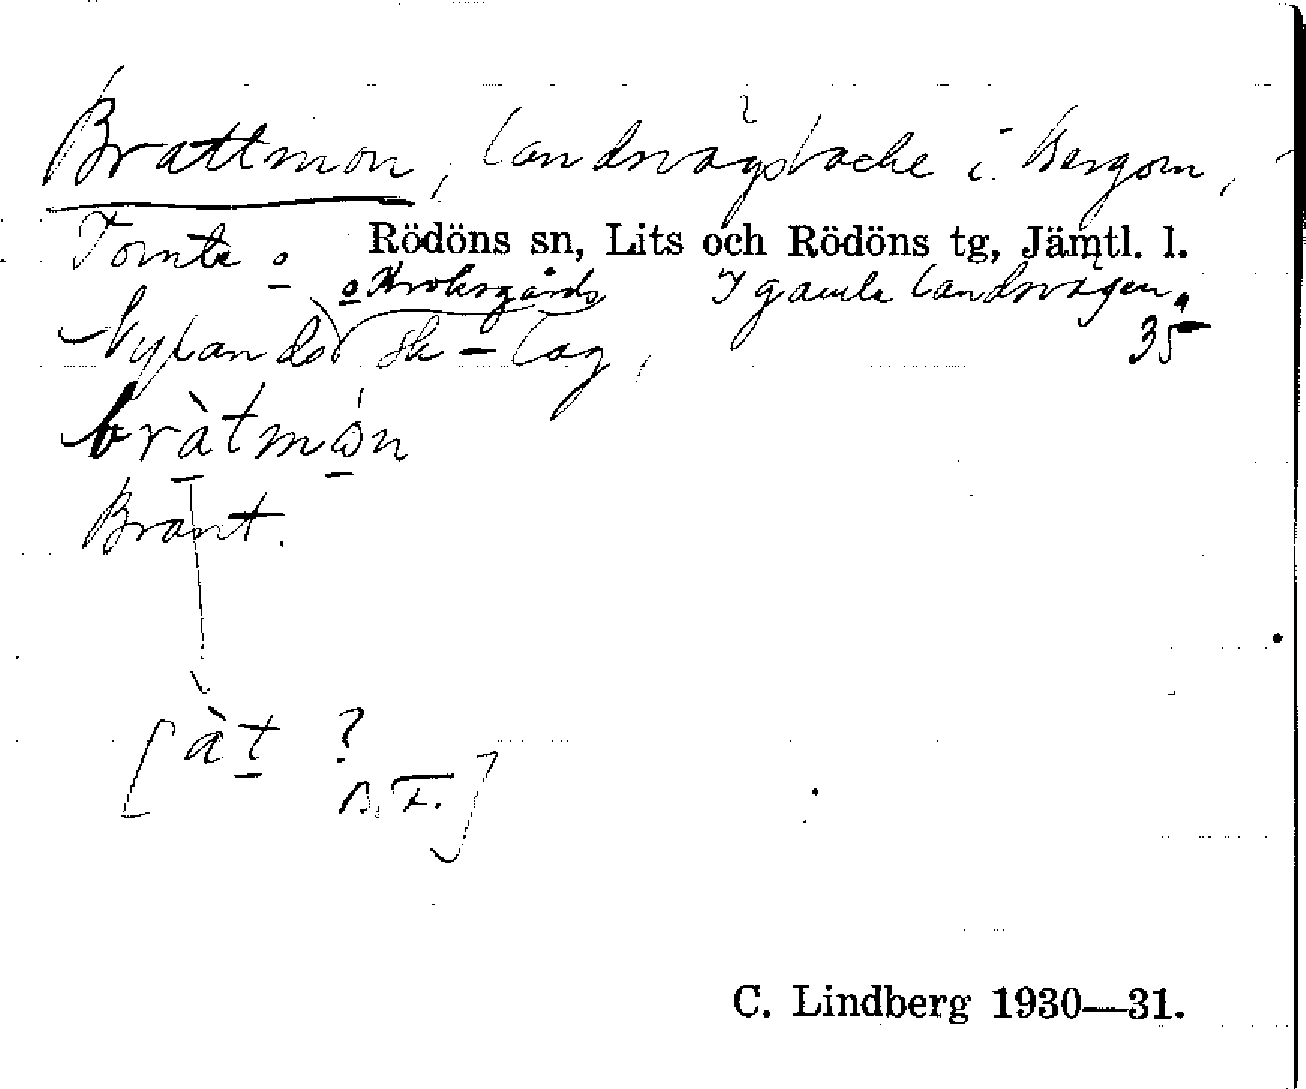 Brattmon, landsvägsbacke i Bergom,
Tomte o Rödöns sn, Lits och Rödöns tg, Jämtl. l.
o Kroksgårds I gamla landsvägen.
Nylands sk-lag, 35
bràtmǿn
Brant.
[àt ?
B. F.]
C. Lindberg 1930—31.